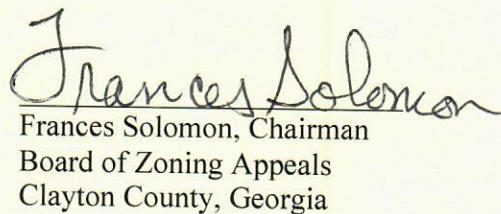 Frances Solomon
Frances Solomon, Chairman
Board of Zoning Appeals
Clayton County, Georgia